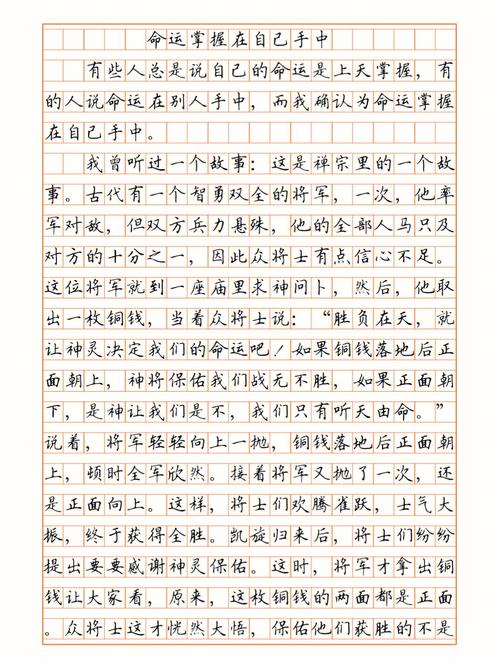 命运掌握在自己手中
有些人总是说自己的命运是上天掌握，有
的人说命运在别人手中，而我确认为命运掌握
在自己手中。
我曾听过一个故事：这是禅宗里的一个故
事。古代有一个智勇双全的将军，一次，他率
军对敌，但双方兵力悬殊，他的全部人马只及
对方的十分之一，因此众将士有点信心不足。
这位将军就到一座庙里求神问卜，然后，他取
出一枚铜钱，当着众将士说：“胜负在天，就
让神灵决定我们的命运吧！如果铜钱落地后正
面朝上，神将保佑我们战无不胜，如果正面朝
下，是神让我们是不，我们只有听天由命。”
说着，将军轻轻向上一抛，铜钱落地后正面朝
上，顿时全军欣然。接着将军又抛了一次，还
是正面向上。这样，将士们欢腾雀跃，士气大
振，终于获得全胜。凯旋归来后，将士们纷纷
提出要要感谢神灵保佑。这时，将军才拿出铜
钱让大家看，原来，这枚铜钱的两面都是正面
。众将士这才恍然大悟，保佑他们获胜的不是